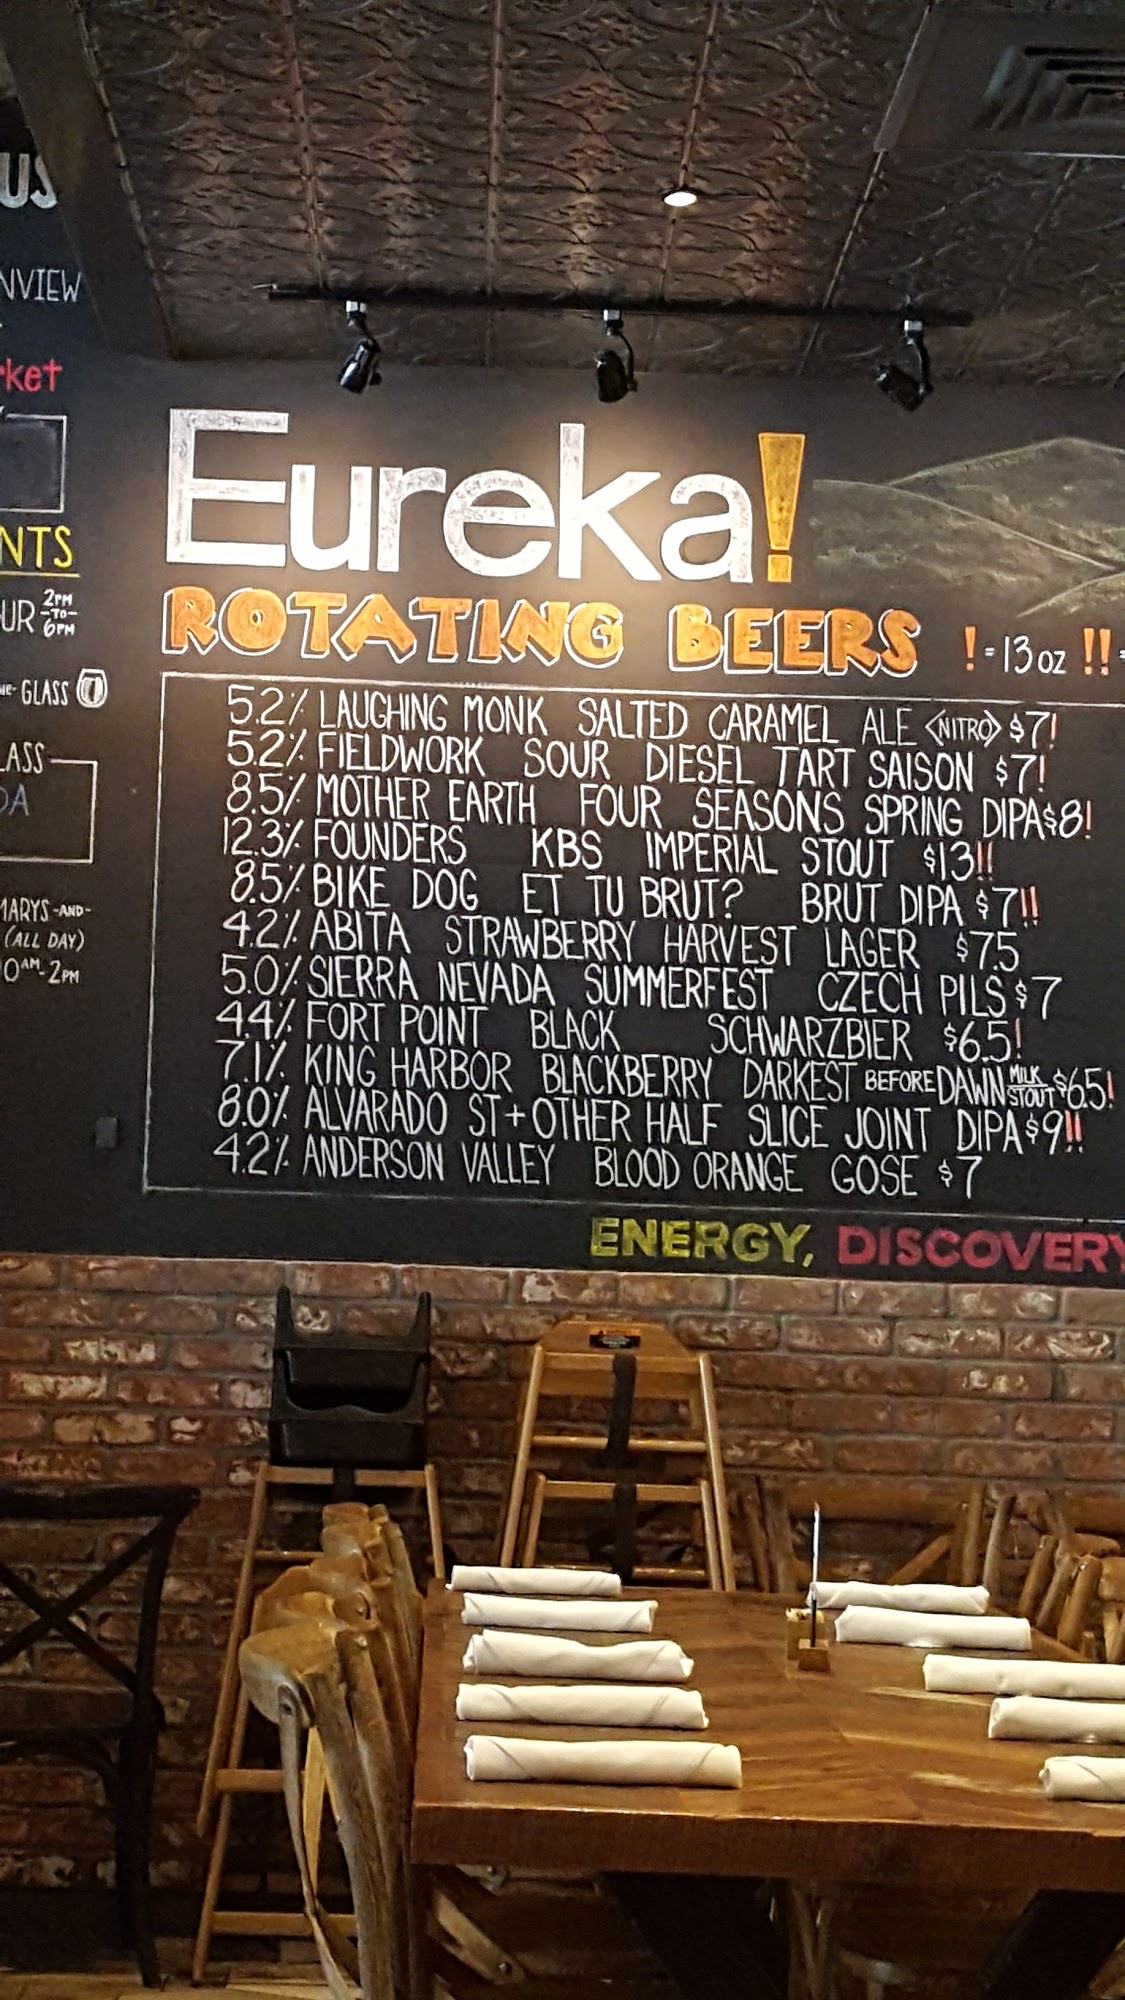 US
NVIEW
rket
NTS
UR 2PM -TO- 6PM
GLASS
LASS
DA
MARYS -AND-
(ALL DAY)
0AM- 2PM
Eureka!
ROTATING BEERS ! = 13 OZ !! =
5.2% LAUGHING MONK SALTED CARAMEL ALE <NITRO> $7!
5.2% FIELDWORK SOUR DIESEL TART SAISON $7!
8.5% MOTHER EARTH FOUR SEASONS SPRING DIPA $8!
12.3% FOUNDERS KBS IMPERIAL STOUT $13!!
8.5% BIKE DOG ET TU BRUT? BRUT DIPA $7!!
4.2% ABITA STRAWBERRY HARVEST LAGER $7.5
5.0% SIERRA NEVADA SUMMERFEST CZECH PILS $7
4.4% FORT POINT BLACK SCHWARZBIER $6.5!
7.1% KING HARBOR BLACKBERRY DARKEST BEFORE DAWN MILK STOUT $6.5!
8.0% ALVARADO ST + OTHER HALF SLICE JOINT DIPA $9!!
4.2% ANDERSON VALLEY BLOOD ORANGE GOSE $7
ENERGY, DISCOVERY